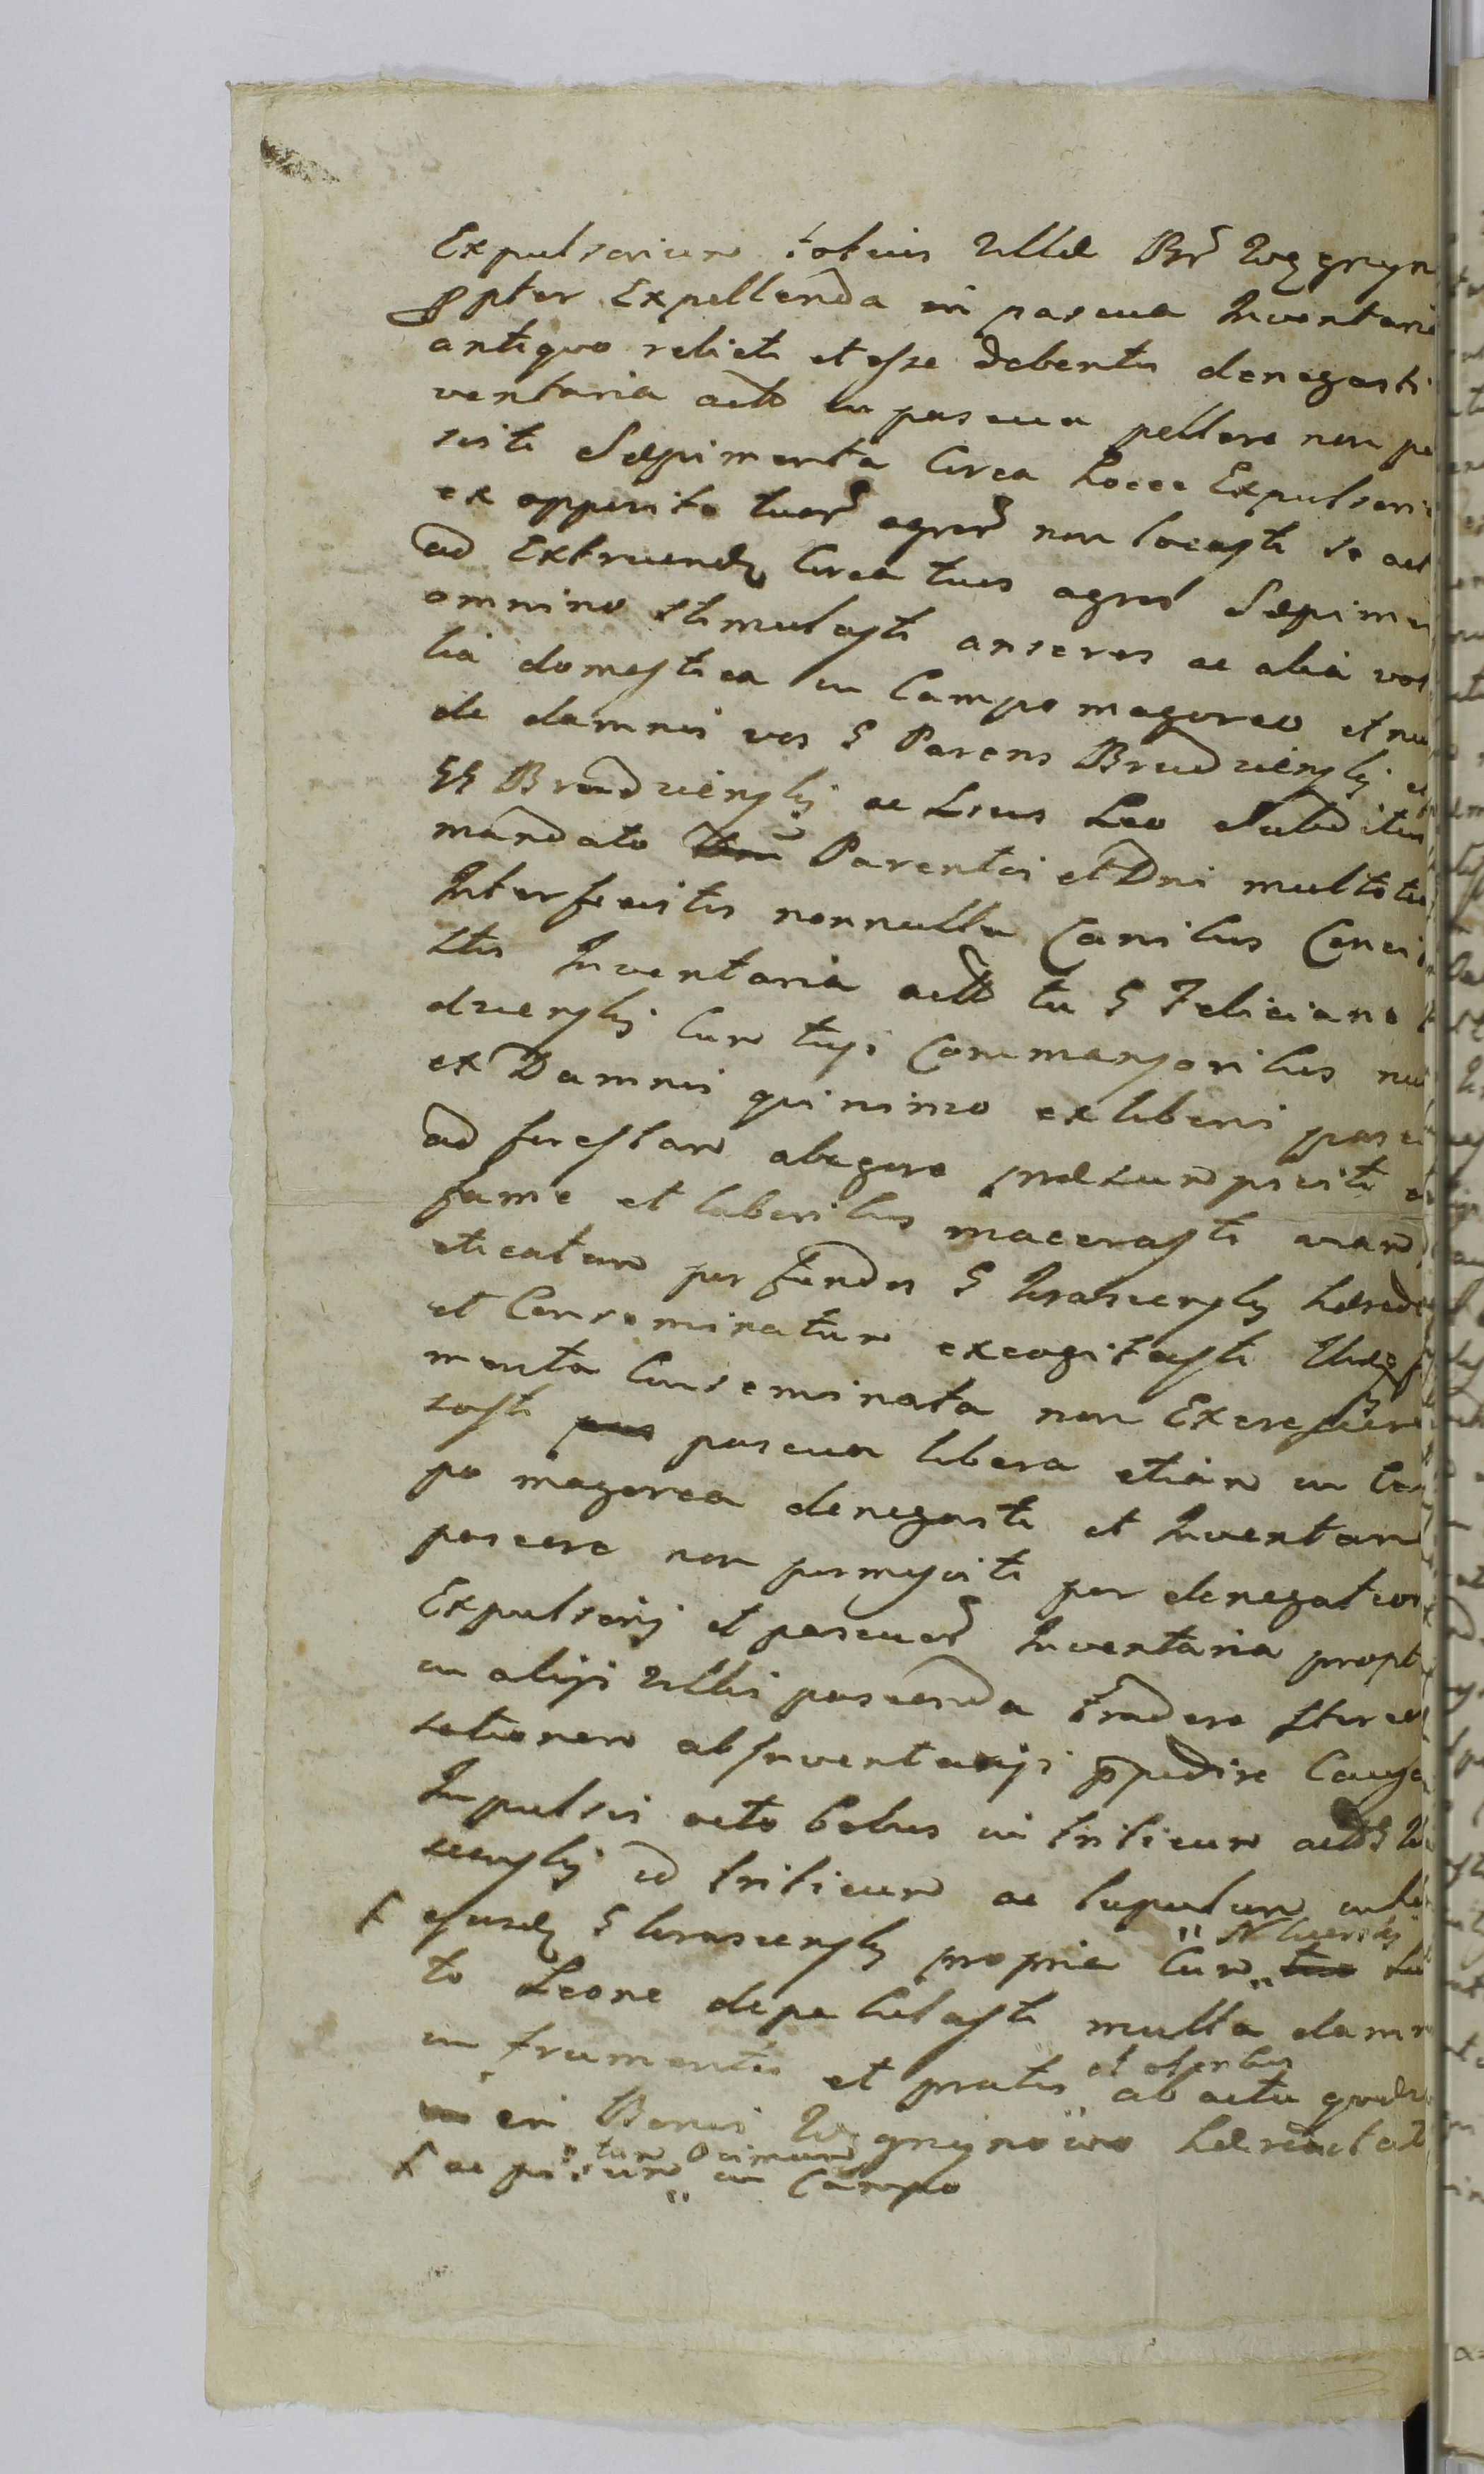 Expulsorium totius villæ Br Węgryn
ppter Expellenda in pascua Inventaria
antiquo relicti et esse debentis denegasti
ventaria actō in pascua pellere non pe
sisti Sepimenta Circa Locce Expulsori
ex opposito tuor agror non locasti so act
ad Extruend Circa tuos agros Sepime
omnino stimulasti anseres ac alia vol
lia domestica in Campo magoreo et nu
de damnis vos G Parens Brudzienski et
GG Brudzienskij ac Lrus Leo Subditus
mandato Parentis et Dni multoti
Interfecistis nonnulla Canibus Conci
stis Inventaria actō tu G Feliciane
dzienskij Cum tuis Commansoribus nu
ex Damnis quinimo ex liberis pascu
ad forestam abegere præsumpsisti
fame et laboribus macerasti viam
eticatam per fundos G Uraszenskij hæred
et Conseminatum excogitasti
menta Conseminata non Excrescere
sasti pas pascua libera etiam in Cam
po magorea denegasti et Inventari
pascere non permisisti per denegation
Expulsorij et pascuor Inventaria propt
in alijs villis pascenda tradere stercor
sationem ab Inventarijs ppedire Causa
Impulsis octo bobus in triticum actō G
szenskij id triticum ac lupulum
ejusd G Uraszenskij proprie Cum tuo
to Leone depabulasti multa damn
in frumentis et pratis et oleribus ab actu
in Bonis Węgnynowo hæreditat
ac pisum tum Ocimum in Campo